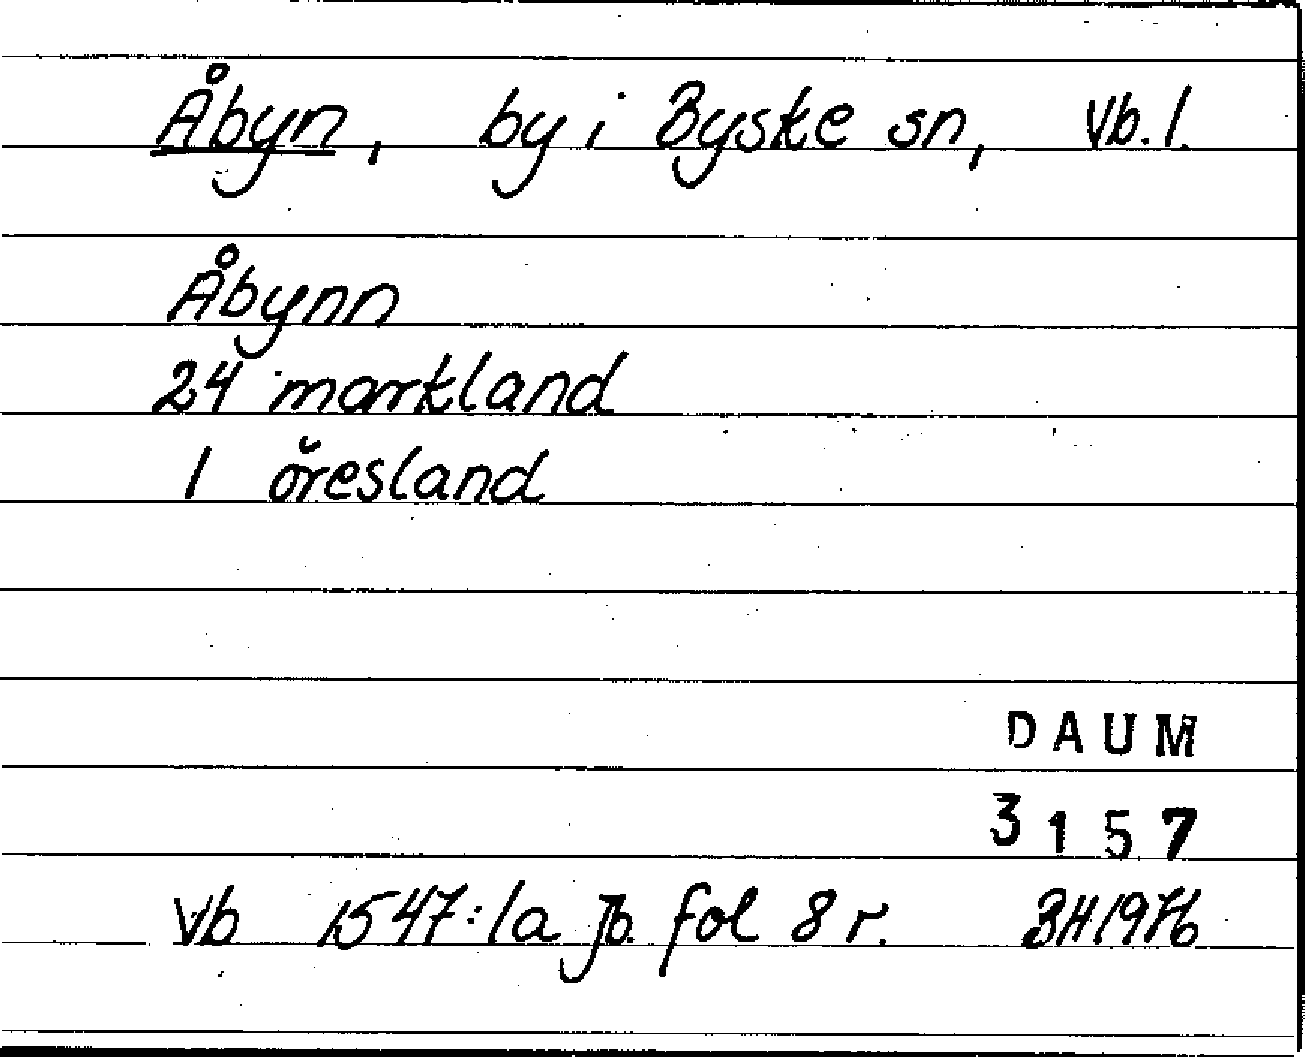 Åbyn, by i Byske sn, Vb. l.
Åbynn
24 markland
1 öresland
DAUM
3157
Vb 1547:1a Jb. fol 8 r. BH 1976